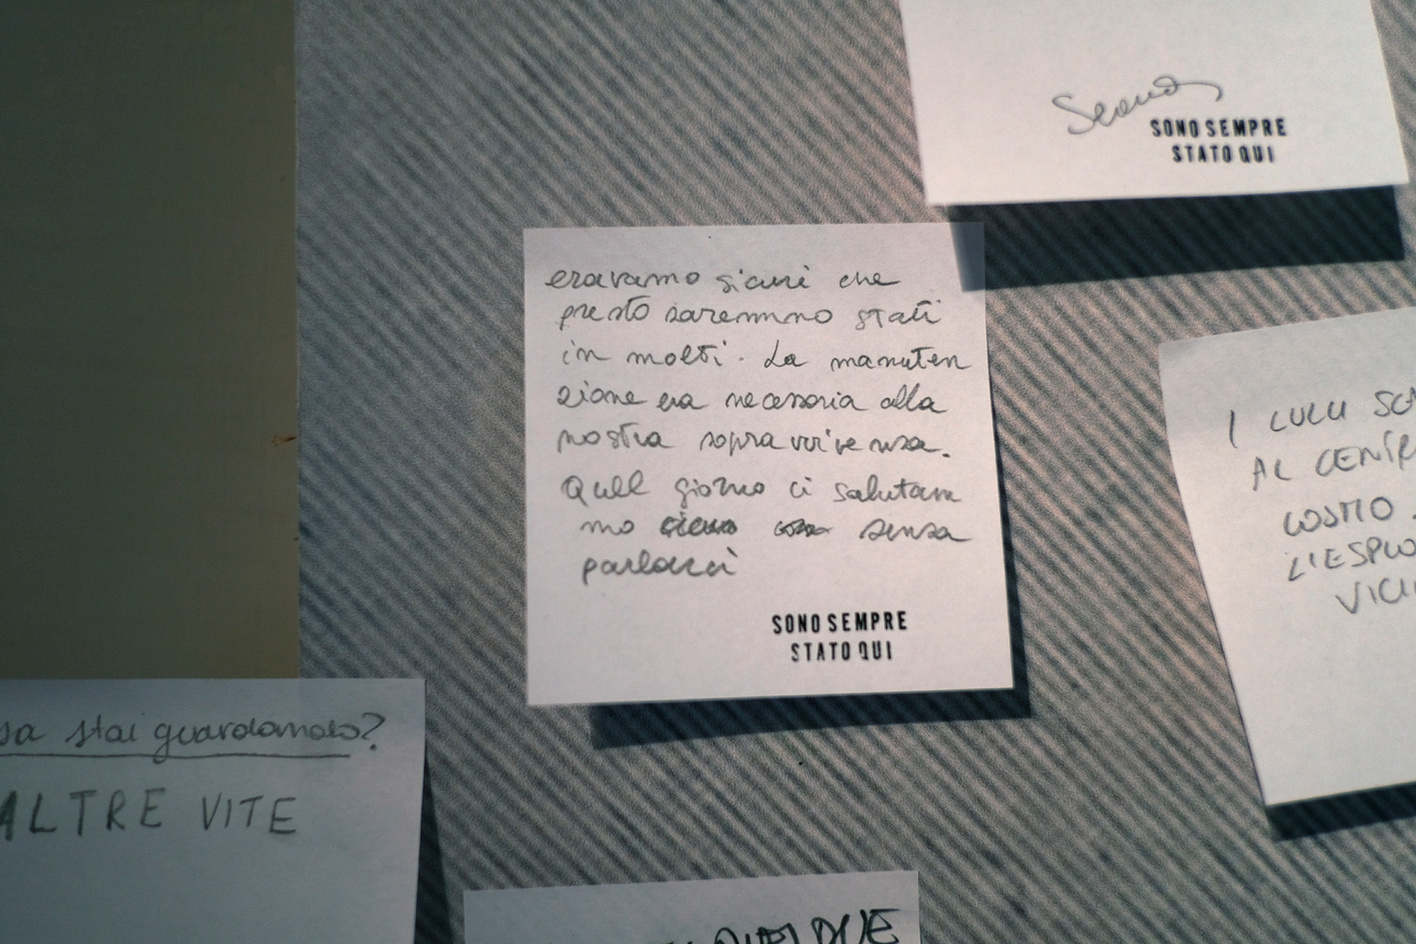 SONO SEMPRE
STATO QUI
eravamo sicuri che
presto saremmo stati
in molti. La manuten
zione era necessaria alla
nostra sopravvivenza.
Quel giorno ci salutam
mo senza
parlarci
SONO SEMPRE
STATO QUI
I LULU
AL CENTR
COSMO.
L'ESPLO
VICI
sa stai guardando?
ALTRE VITE
DUE